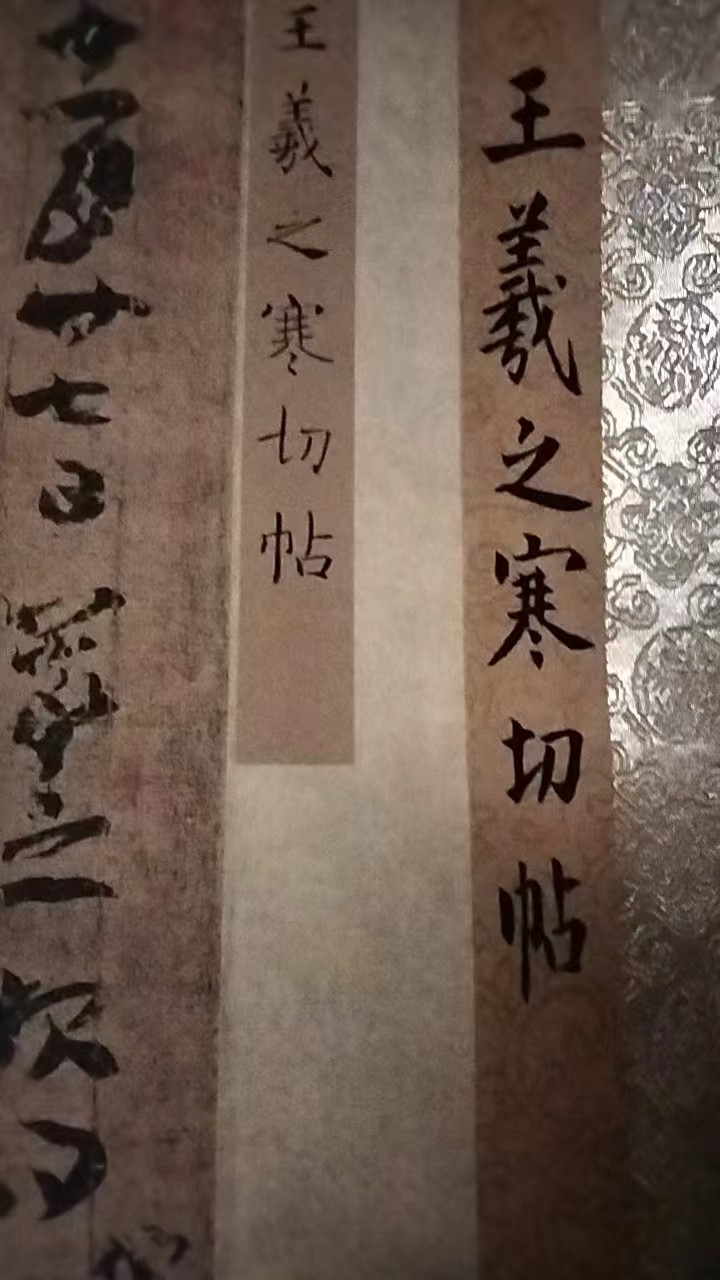 王羲之寒切帖
王羲之寒切帖
十一月廿七日羲之報得